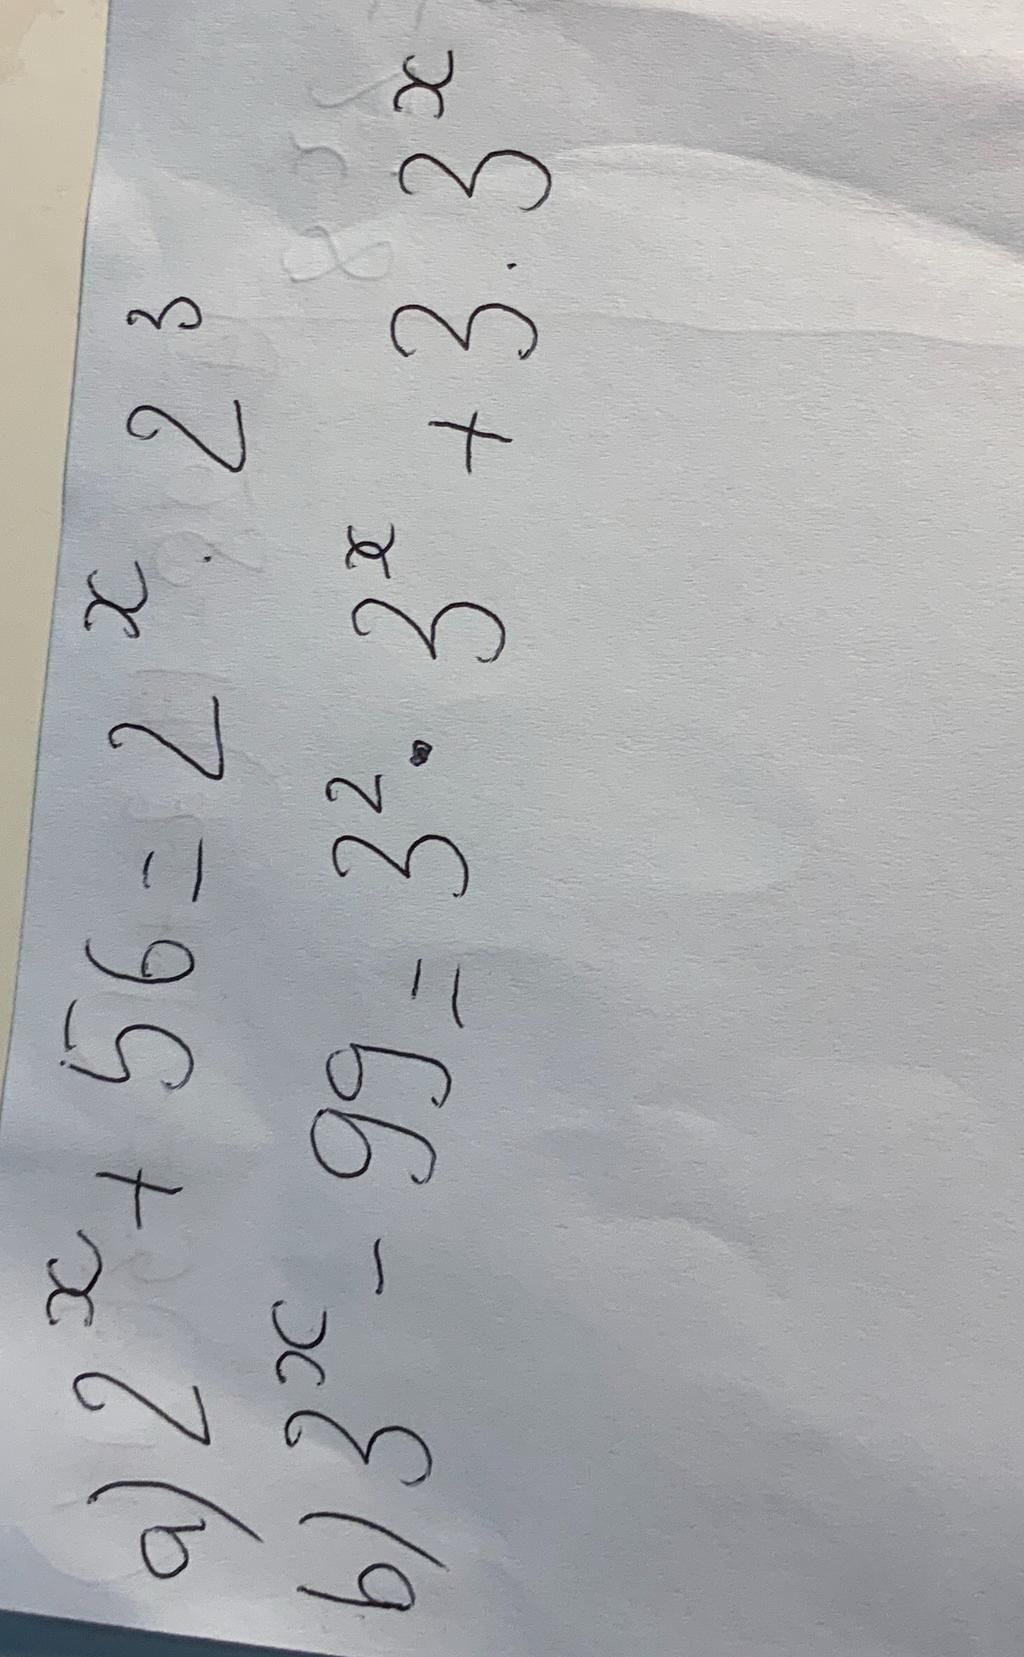 a) 2ˣ + 56 = 2ˣ . 2³
b) 3ˣ - 99 = 3² . 3ˣ + 3 . 3ˣ